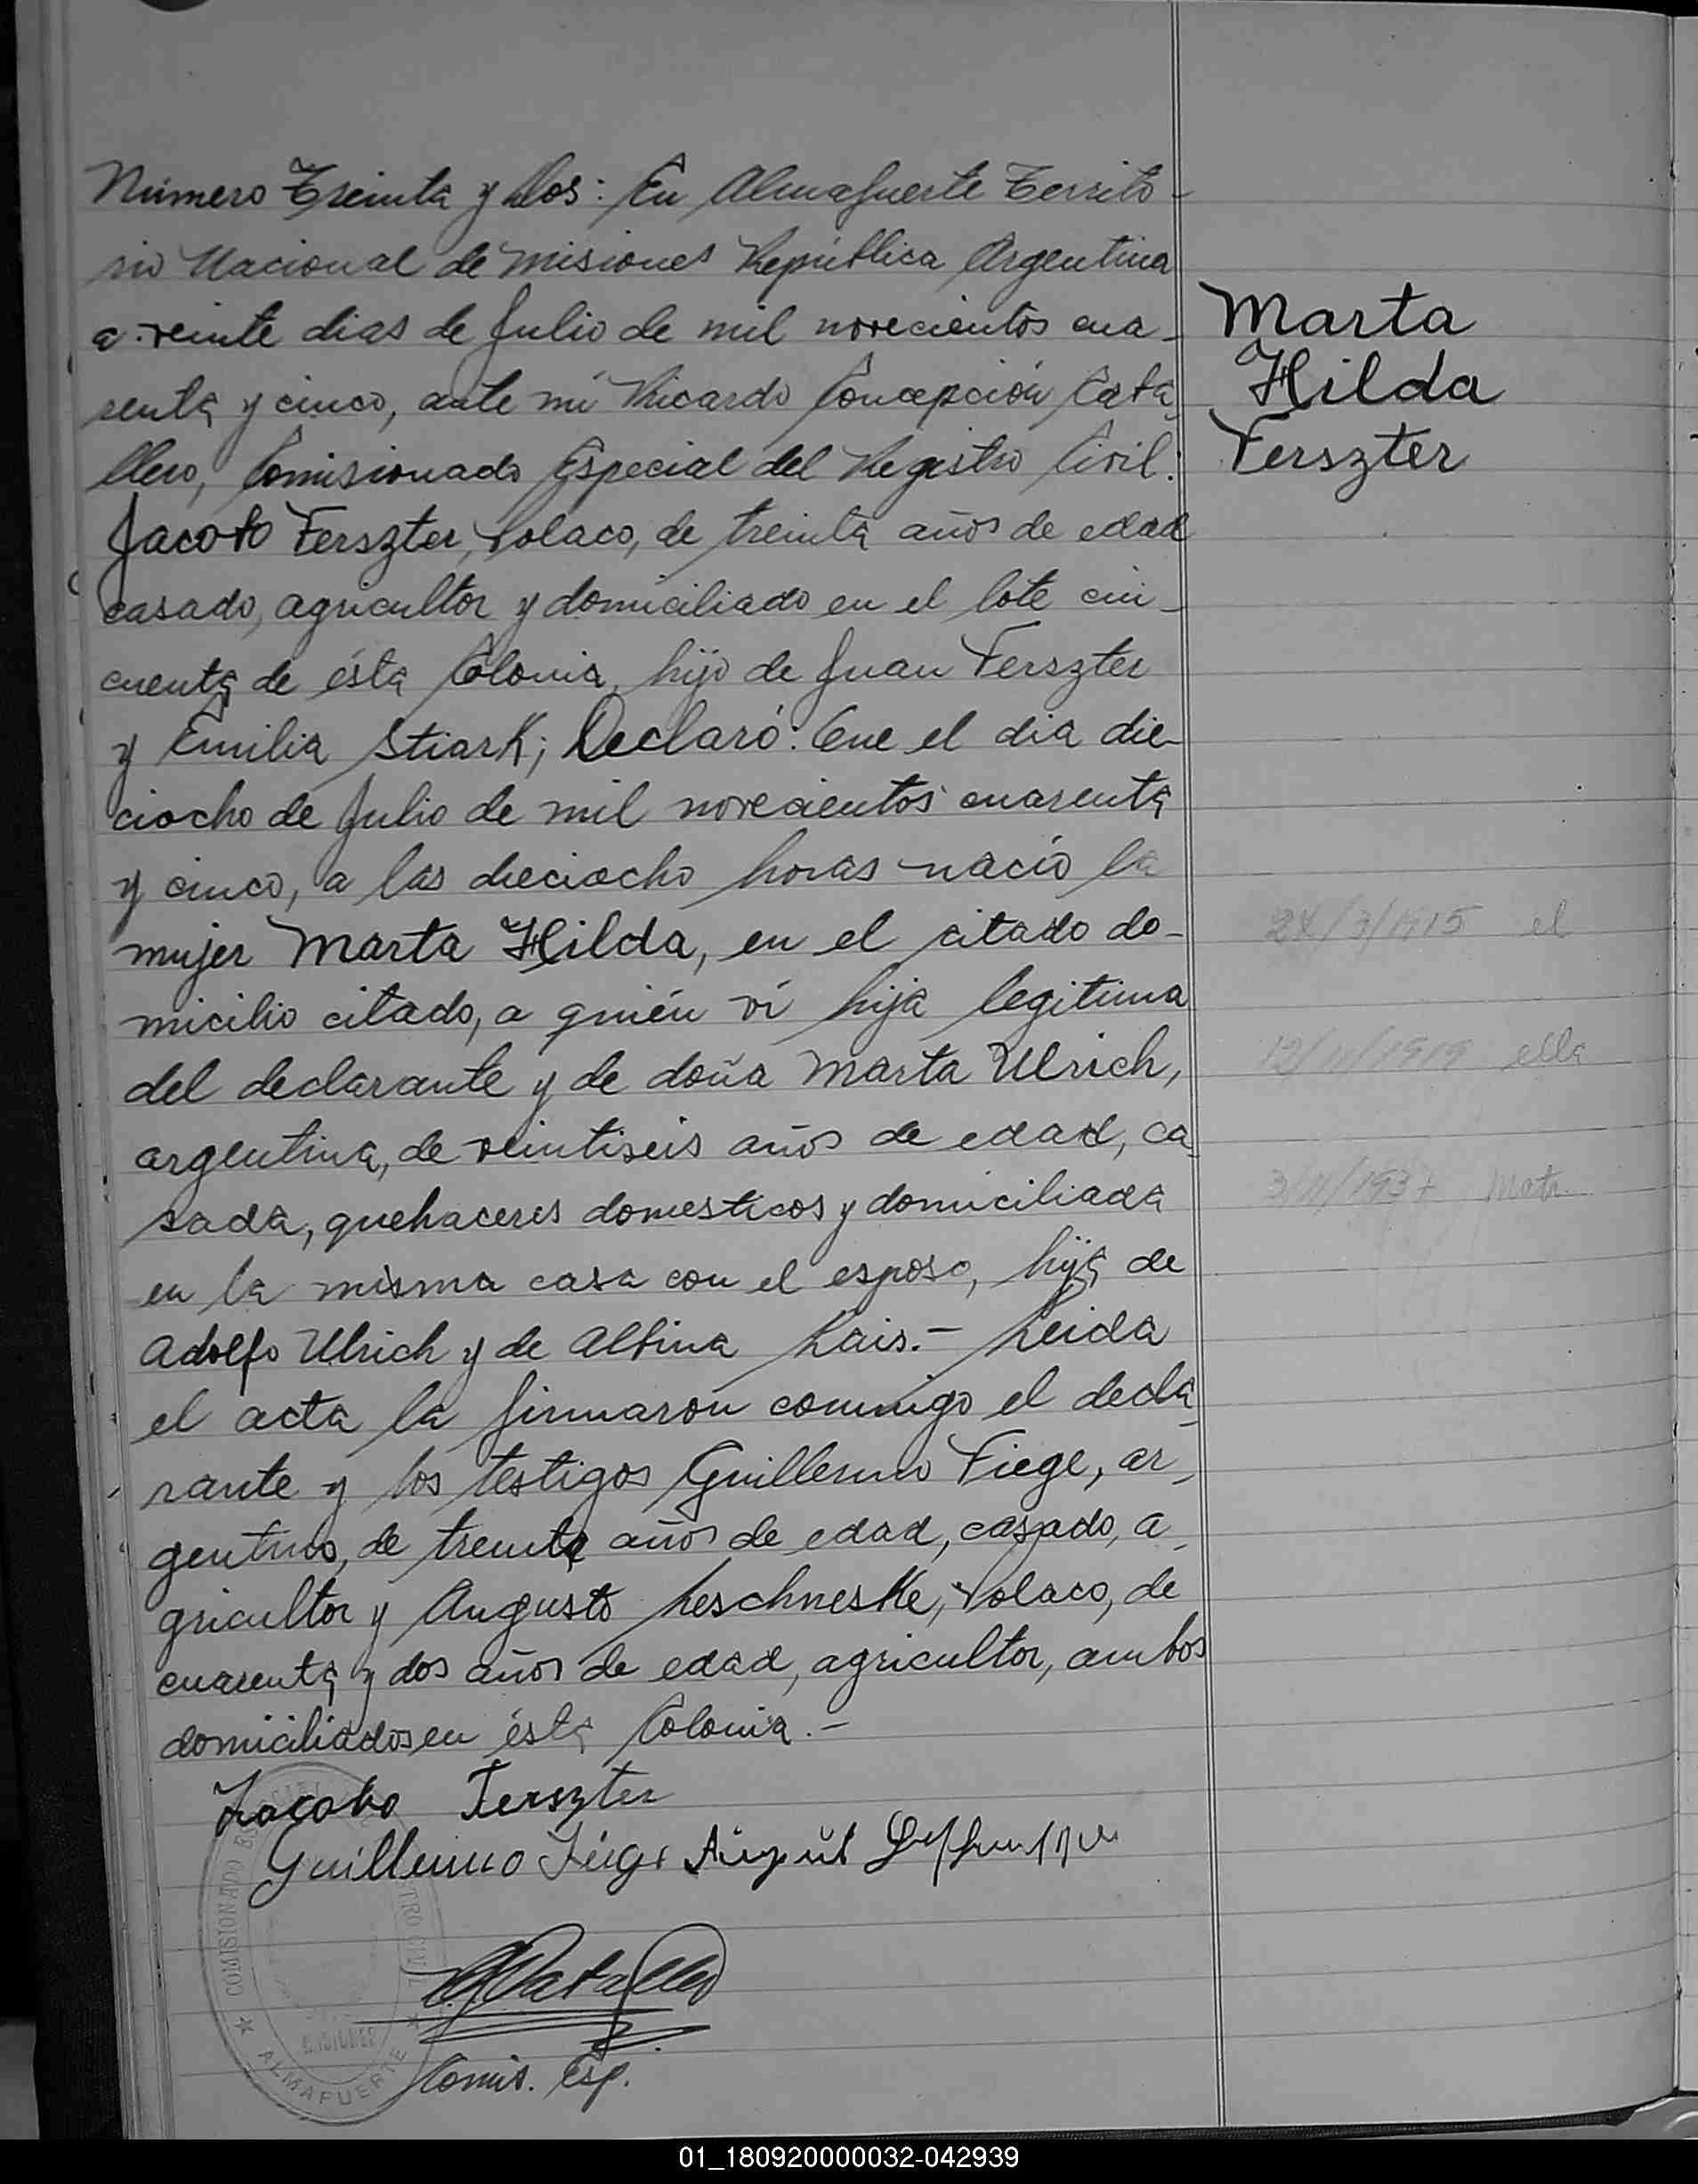 Número Treinta y dos: En Almafuerte Territo-
rio Nacional de Misiones República Argentina
a veinte dias de Julio de mil novecientos cua-
renta y cinco, ante mí Ricardo Concepción Cata-
llero, Comisionado Especial del Registro Civil:
Jacobo Ferszter, Polaco, de treinta años de edad
casado, agricultor y domiciliado en el lote cin-
cuenta de ésta Colonia, hijo de Juan Ferszter
y Emilia Stiark; Declaró: Que el dia die-
ciocho de Julio de mil novecientos cuarenta
y cinco, a las dieciocho horas nació la
mujer Marta Hilda, en el citado do-
micilio citado, a quién ví hija legitima
del declarante y de doña Marta Ulrich,
argentina, de veintiseis años de edad, ca-
sada, quehaceres domesticos y domiciliada
en la misma casa con el esposo, hija de
Adolfo Ulrich y de Albina Lais.- Leida
el acta la firmaron conmigo el decla-
rante y los testigos Guillermo Fiege, ar-
gentino, de treinta años de edad, casado, a-
gricultor y Augusto Leschneske, Polaco, de
cuarenta y dos años de edad, agricultor, ambos
domiciliados en ésta Colonia.-
Jacobo Ferszter
Guillermo Fiege August
Comis. Esp.
COMISIONADO
ALMAFUERTE
MISIONES
Marta
Hilda
Ferszter
/3/1915 el
12/11/1919 ella
3/11/1937 Matr.
01_180920000032-042939